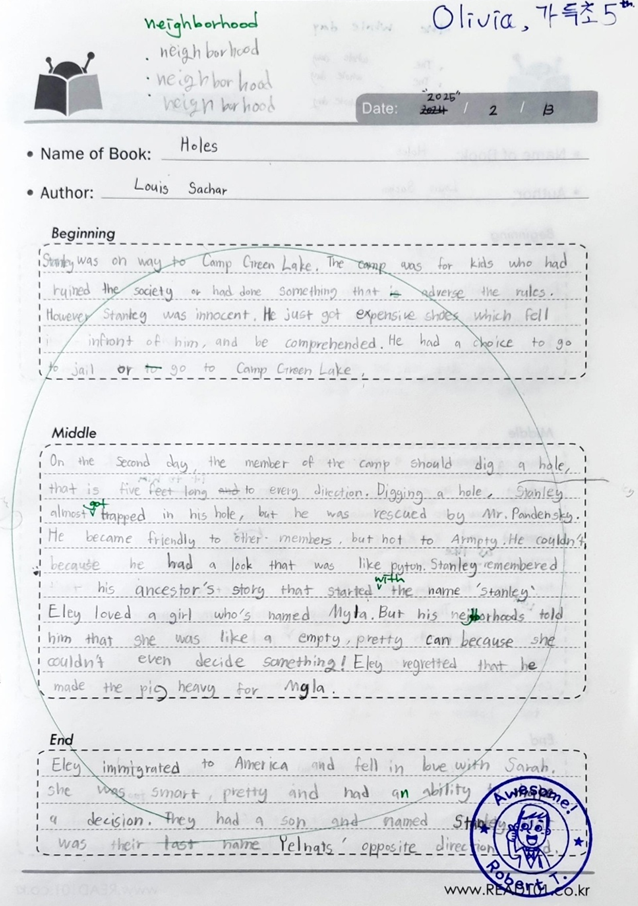 neighborhood
· neighborhood
· neighborhood
· neighborhood
Olivia, 가득초 5th
Date: 2024 "2025" / 2 / 13
• Name of Book: Holes
• Author: Louis Sachar
Beginning
Stanley was on way to Camp Green Lake. The camp was for kids who had
ruined the society or had done something that is adverse the rules.
However Stanley was innocent. He just got expensive shoes which fell
infront of him, and be comprehended. He had a choice to go
to jail or to go to Camp Green Lake.
Middle
On the second day, the member of the camp should dig a hole,
that is five feet long and to every direction. Digging a hole, Stanley
almost got trapped in his hole, but he was rescued by Mr. Pendensky.
He became friendly to other members, but not to Armpty. He couldn't
because he had a look that was like pyton. Stanley remembered
his ancestor's story that started with the name 'stanley'
Eley loved a girl who's named Myla. But his neighborhoods told
him that she was like a empty, pretty can because she
couldn't even decide something! Eley regretted that he
made the pig heavy for Myla.
End
Eley immigrated to America and fell in love with Sarah.
she was smart, pretty and had an ability
a decision. They had a son and named Stanley
was their last name Yelnats' opposite direction
Awesome!
Robert T.
www.READ101.co.kr